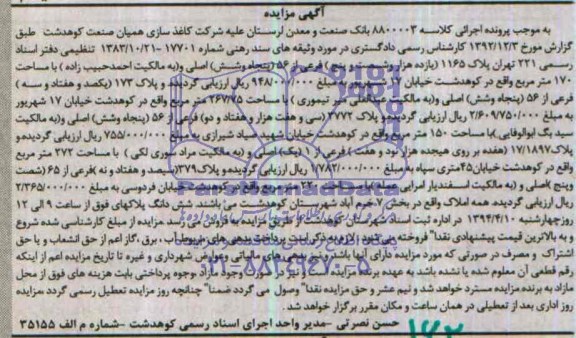 آگهی مزایده
به موجب پرونده اجرائی کلاسه 8800003 بانک صنعت و معدن لرستان علیه شرکت کاغذ سازی همیان صنعت کوهدشت طبق
گزارش مورخ 1392/12/3 کارشناس رسمی دادگستری در مورد وثیقه های سند رهنی شماره 17701 -1383/10/21 تنظیمی دفتر اسناد
رسمی 221 تهران پلاک 1165 (یازده هزار وشصت و پنج) فرعی از 56 (پنجاه وشش) اصلی و(به مالکیت احمدحبیب زاده ) با مساحت
170 متر مربع واقع در کوهدشت خیابان 17 به مبلغ 000/ 948 ریال ارزیابی گردیده و پلاک 173 (یکصد و هفتاد و سه )
فرعی از 56 (پنجاه وشش) اصلی و(به مالکیت عبدالعلی میر تیموری ) با مساحت 267/75 متر مربع واقع در کوهدشت خیابان 17 شهریور
به مبلغ 2/609/750/000 ریال ارزیابی گردیدو پلاک 3772 (سی و هفت هزار و هفتاد و دو) فرعی از 56 (پنجاه وشش) اصلی و(به مالکیت
سید یگ ابوالوفایی )با مساحت 150 متر مربع واقع در کوهدشت خیابان شهید صیاد شیرازی به مبلغ 755/000/000 ریال ارزیابی گردیدهو
پلاک17/1897 (هفده بر روی هیجده هزار نود و هفت ) فرعی از 1 (یک) اصلی و (به مالکیت مراد نوری لکی ) با مساحت 272 متر مربع
واقع در کوهدشت خیابان45متری سپاه به مبلغ 782/000/000 ریال ارزیابی گردیدو پلاک379(سیصد و هفتاد و نه )فرعی از 65 (شصت
وپنج )اصلی و (به مالکیت اسفندیار امرایی متر مربع واقع در کوهدشت خیابان فردوسی به مبلغ 2/365/000/000
ریال ارزیابی گردیده. همه املاک واقع در بخش 7 خرم آباد شهرستان کوهدشت می باشند. شش دانگ پلاکهای فوق از ساعت 9 الی 12
روزچهارشنبه 1394/4/10 در اداره ثبت اسناد شهرستان کوهدشت از طریق مزایده به فروش می رسد. مزایده از مبلغ کارشناسی شده شروع
و به بالاترین قیمت پیشنهادی نقدا" فروخته می شود. لازم به ذکر است پرداخت بدهی های مربوط آب ،برق ،گاز اعم از حق انشعاب و یا حق
اشتراک و مصرف در صورتی که مورد مزایده دارای آنها باشد و نیز بدهی های مالیاتی وعوارض شهرداری و غیره تا تاریخ مزایده اعم از اینکه
رقم قطعی آن معلوم شده یا نشده باشد به عهده برنده مزایده است و نیز در صورت وجود مازاد ،وجوه پرداختی بابت هزینه های فوق از محل
مازاد به برنده مزایده مسترد خواهد شد و نیم عشر و حق مزایده نقدا" وصول می گردد. ضمنا" چنانچه روز مزایده تعطیل رسمی گردد ،مزایده
روز اداری بعد از تعطیلی در همان ساعت و مکان مقرر برگزار خواهد شد.
حسن نصرتی -مدیر واحد اجرای اسناد رسمی کوهدشت -شماره م الف 35155